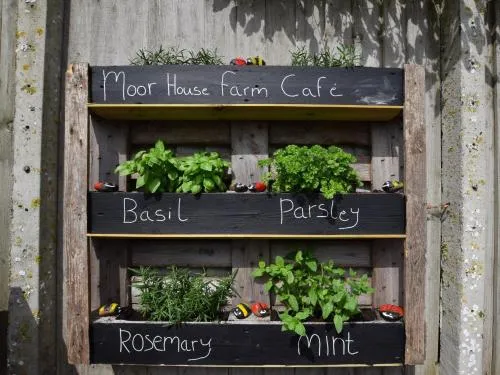 Moor House Farm Café
Basil Parsley
Rosemary Mint